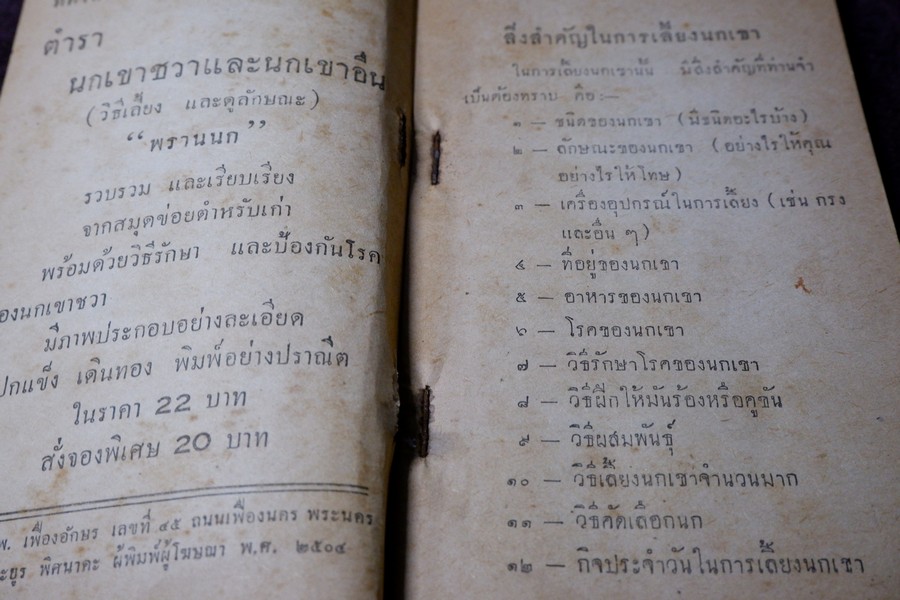 ตำรา
นกเขาชวาและนกเขาอื่น
(วิธีเลี้ยง และดูลักษณะ)
“พรานนก”
รวบรวม และเรียบเรียง
จากสมุดข่อยตำหรับเก่า
พร้อมด้วยวิธีรักษา และป้องกันโรค
องนกเขาชวา
มีภาพประกอบอย่างละเอียด
ปกแข็ง เดินทอง พิมพ์อย่างปราณีต
ในราคา 22 บาท
สั่งจองพิเศษ 20 บาท
พ. เฟื่องอักษร เลขที่ ๔๕ ถนนเฟื่องนคร พระนคร
ะยูร พิศนาคะ ผู้พิมพ์ผู้โฆษณา พ.ศ. ๒๕๐๔
สิ่งสำคัญในการเลี้ยงนกเขา
ในการเลี้ยงนกเขานั้น มีสิ่งสำคัญที่ท่านจำ
เป็นต้องทราบ คือ :—
๑ — ชนิดของนกเขา (มีชนิดอะไรบ้าง)
๒ — ลักษณะของนกเขา (อย่างไรให้คุณ
อย่างไรให้โทษ)
๓ — เครื่องอุปกรณ์ในการเลี้ยง (เช่น กรง
และอื่น ๆ)
๔ — ที่อยู่ของนกเขา
๕ — อาหารของนกเขา
๖ — โรคของนกเขา
๗ — วิธีรักษาโรคของนกเขา
๘ — วิธีฝึกให้มันร้องหรือคูขัน
๙ — วิธีผสมพันธุ์
๑๐ — วิธีเลี้ยงนกเขาจำนวนมาก
๑๑ — วิธีคัดเลือกนก
๑๒ — กิจประจำวันในการเลี้ยงนกเขา